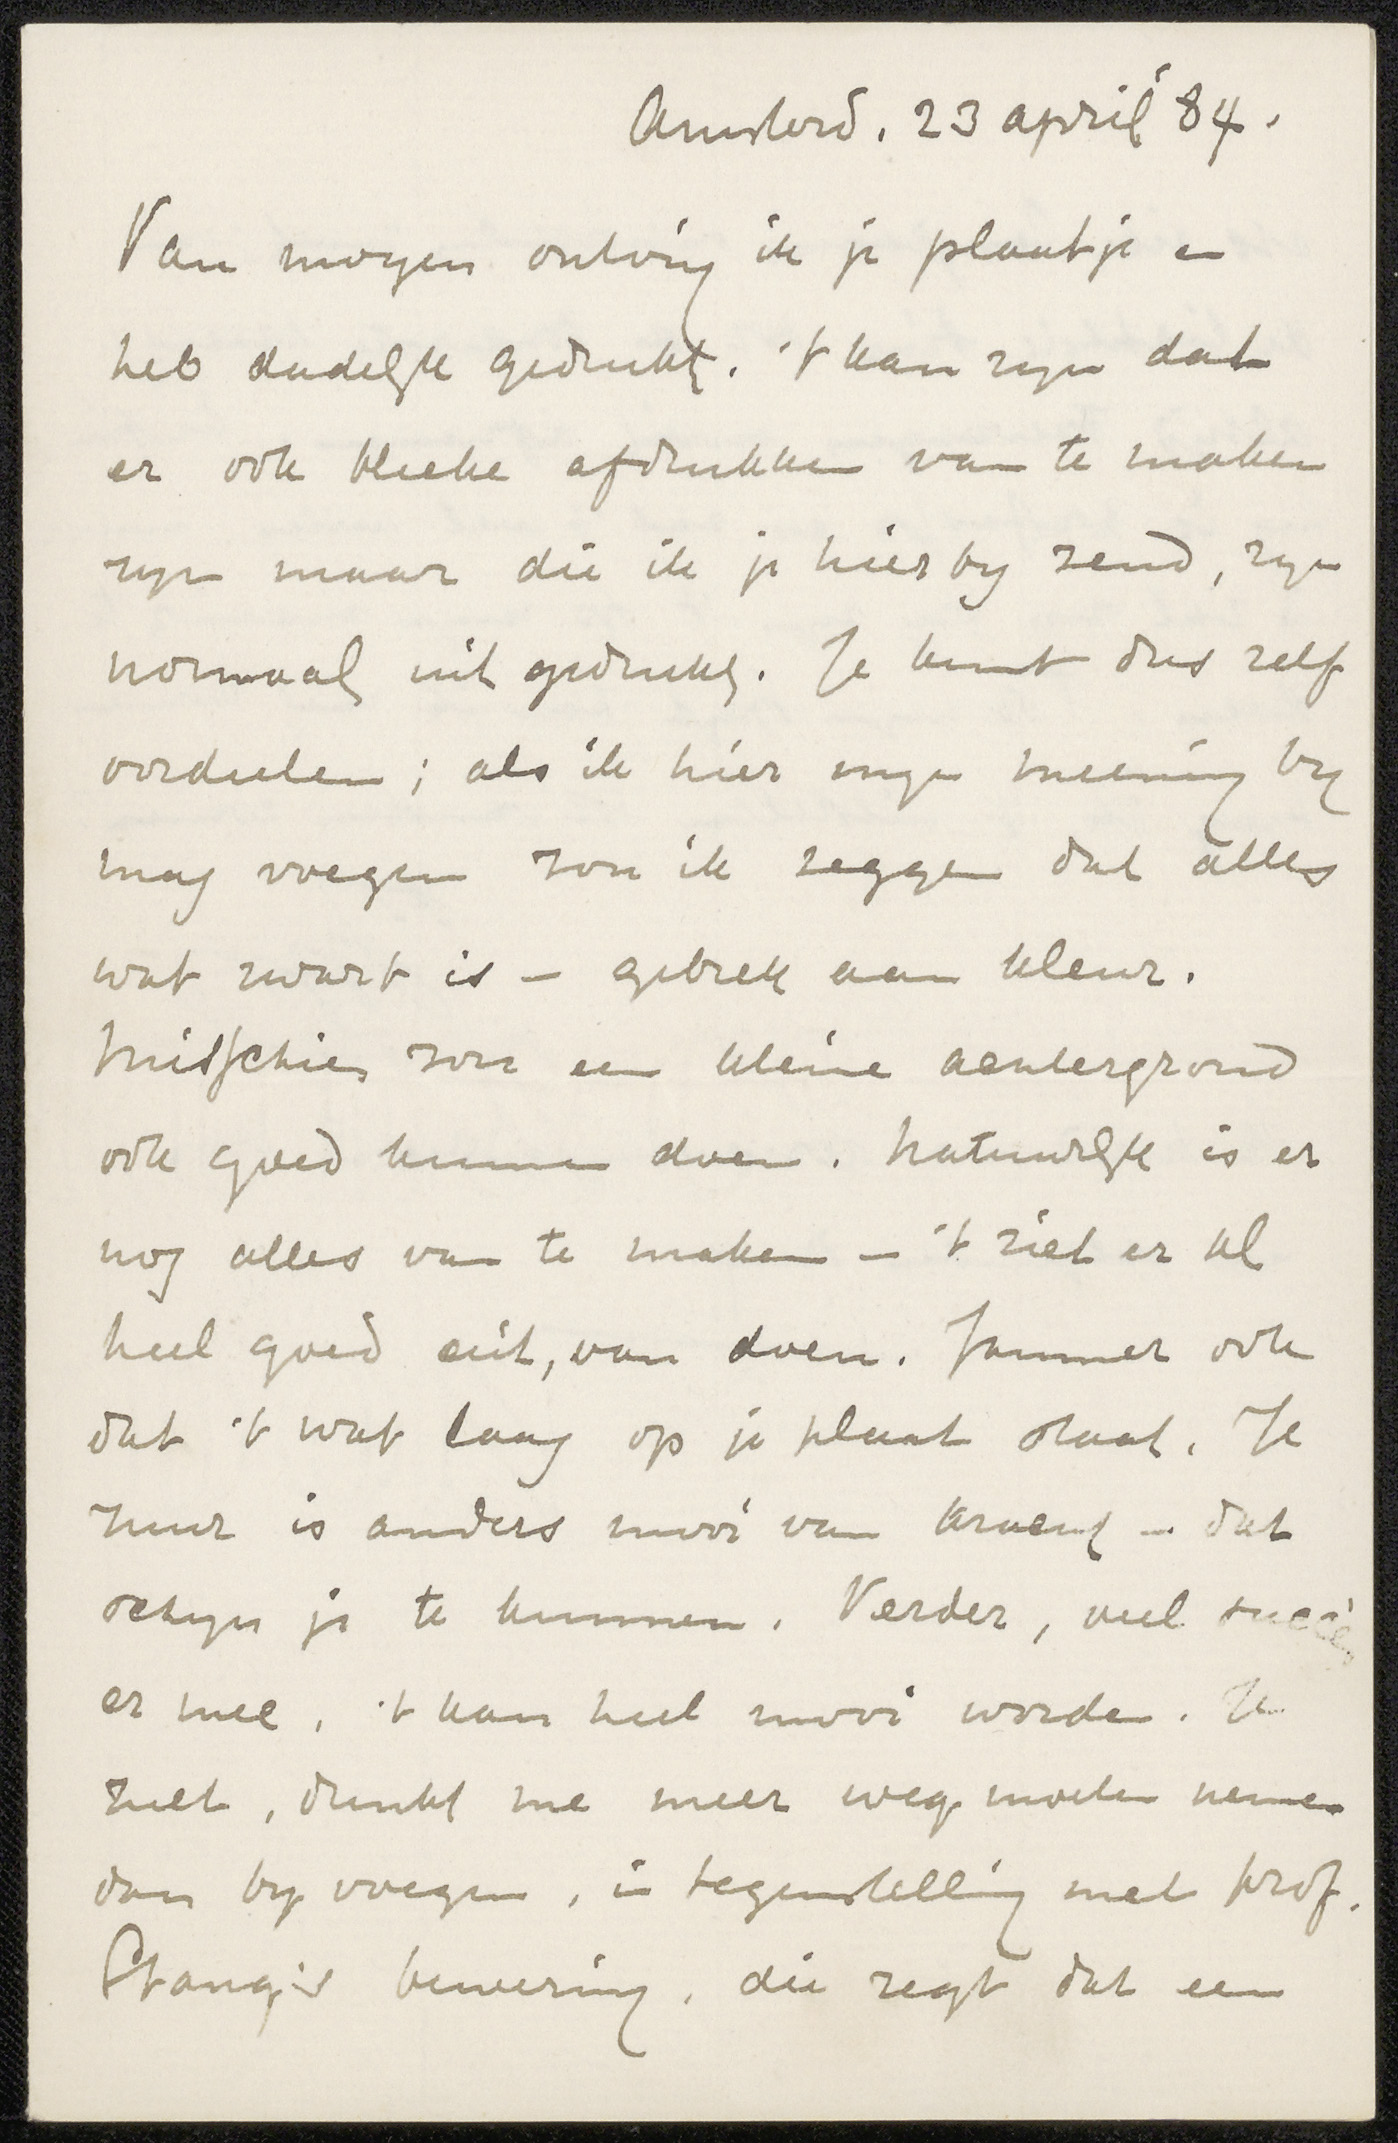 Amsterd. 23 april '84.
Van morgen ontving ik je plaatje en
heb dadelyk gedrukt. 't kan zyn dat
er ook bleeke afdrukken van te maken
zyn maar die ik je hierby zend, zyn
normaal uit gedrukt. Je kunt dus zelf
oordeelen; als ik hier myn meening by
mag voegen zou ik zeggen dat alles
wat zwart is – gebrek aan kleur.
Misschien zou een kleine achtergrond
ook goed kunnen doen. Natuurlyk is er
nog alles van te maken – 't ziet er al
heel goed uit, van doen. Jammer ook
dat 't wat laag op je plaat staat. Je
zuur is anders mooi van kracht – dat
schyn je te kennen. Verder, veel succès
er mee, 't kan heel mooi worden. Je
zult, dunkt me meer weg moeten nemen
dan by voegen, in tegenstelling met prof.
Stang's bewering, die zegt dat een